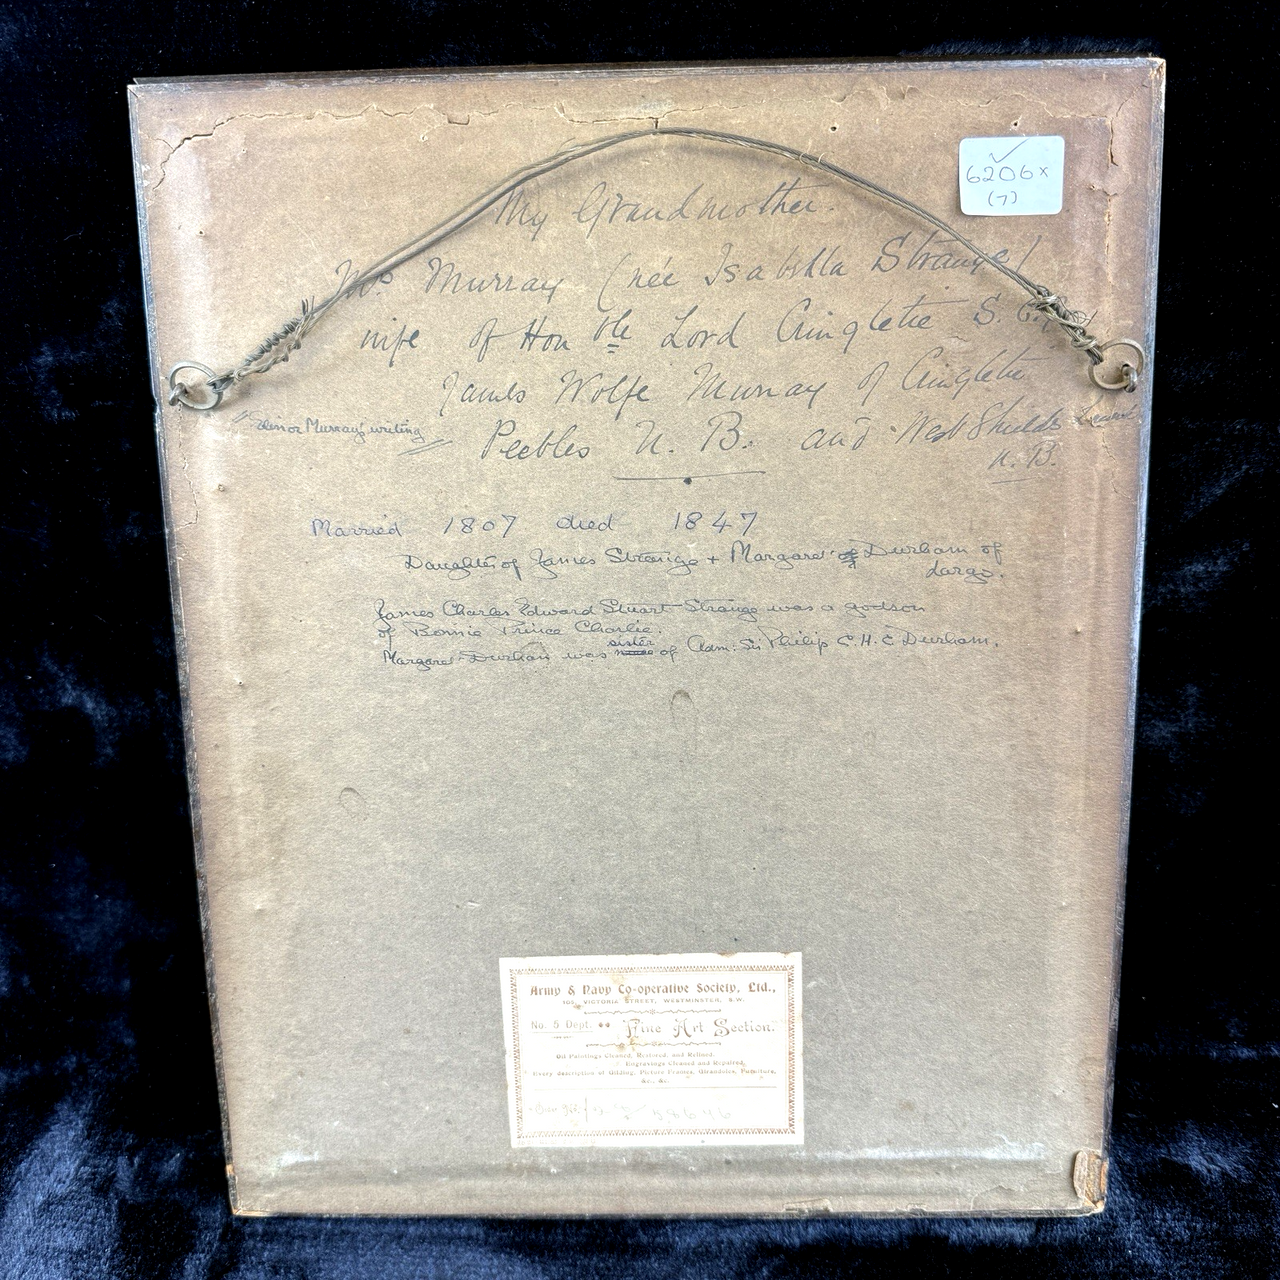 6206x
(7)
My Grandmother.
Mrs Murray (née Isabella Strange)
wife of Hon ble Lord Cringletie S. C. J.
James Wolfe Murray of Cringletie
"Elinor Murray's writing"
Peebles N. B. and West Shields Lanark
N. B.
Married 1807 died 1847
Daughter of James Strange + Margaret Durham of
Largo.
James Charles Edward Stuart Strange was a godson
of Bonnie Prince Charlie.
sister
Margaret Durham was of Adm: Sir Philip C. H. C Durham.
Army & Navy Co-operative Society, Ltd.,
105, VICTORIA STREET, WESTMINSTER, S.W.
No. 5 Dept. Fine Art Section.
Oil Paintings Cleaned, Restored, and Relined.
Engravings Cleaned and Repaired.
Every description of Gilding, Picture Frames, Girandoles, Furniture,
&c., &c.